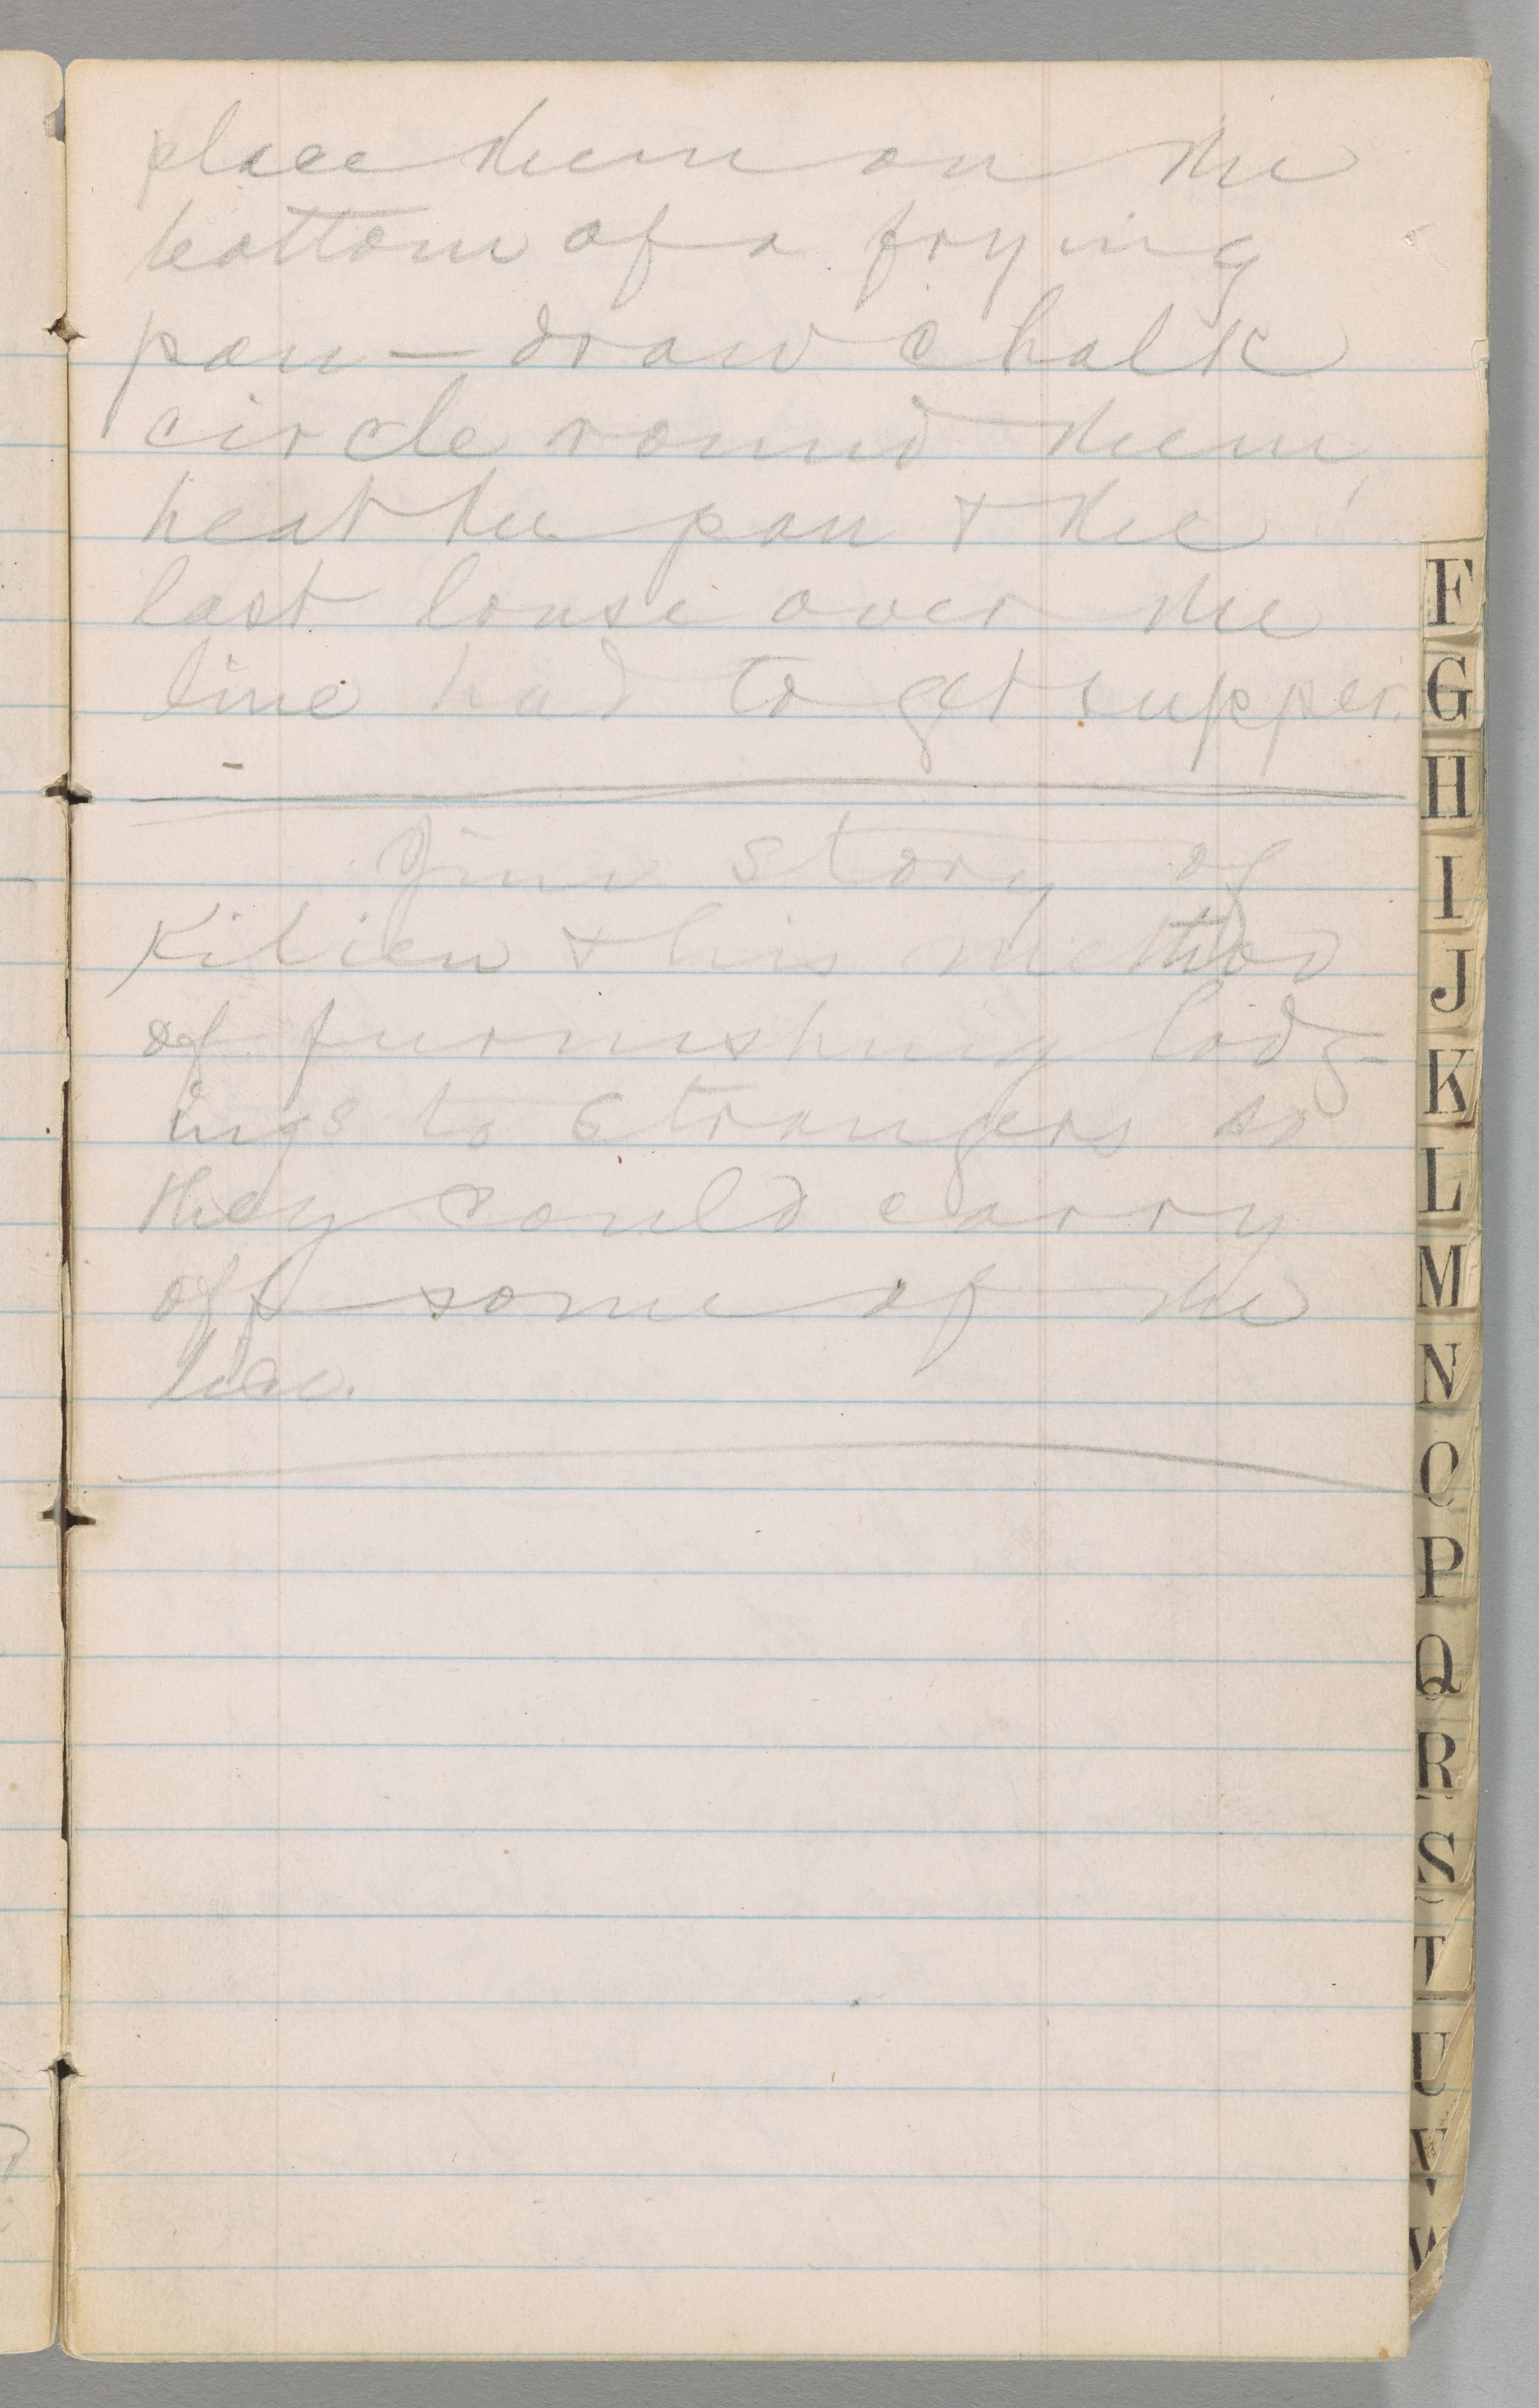 place them on the
bottom of a frying
pan — draw chalk
circle round them,
heat the pan & the
last louse over the
line had to get supper.
Jim's story of
Kilien & his method
of furnishing lodg-
ings to strangers so
they could carry
off some of the
lice.
F
G
H
I
J
K
L
M
N
O
P
Q
R
S
T
U
V
W